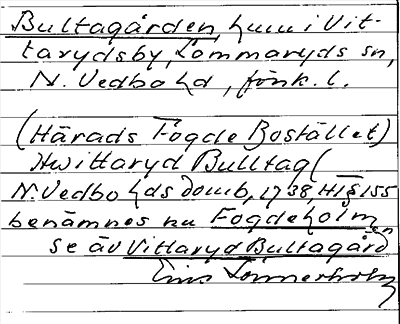 Bultagården, hmn i Vit-
tarydsby, Lommaryds sn,
N. Vedbo hd, Jönk. l.
(Härads Fogde Bostället)
Hwittaryd Bulltag(
N. Vedbo hds domb, 1738, HI § 155
benämnes nu Fogdeholm
se äv Vittaryd Bultagård